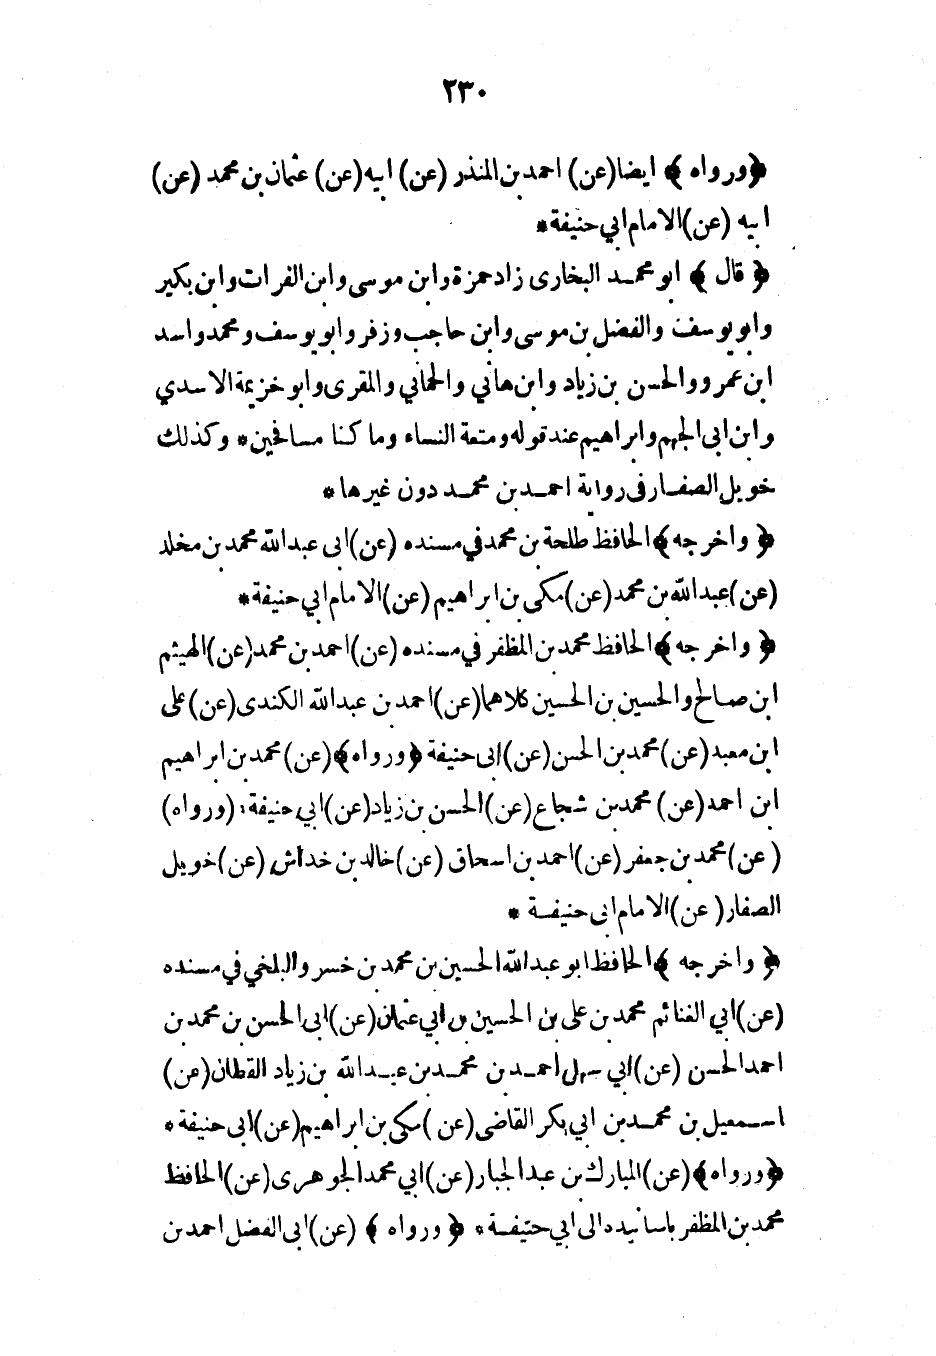 ٢٣٠
﴿ورواه﴾ ايضا(عن) احمد بن المنذر (عن) ابيه (عن) عثمان بن محمد (عن)
ابيه (عن)الامام ابي حنيفة*
﴿قال﴾ ابو محمد البخارى زاد حمزة وابن موسى وابن الفرات وابن بكير
وابو يوسف والفضل بن موسى وابن حاجب وزفر وابو يوسف ومحمد واسد
ابن عمرو والحسن بن زياد وابن هاني والحماني والمقرى وابو خزيمة الاسدي
وابن ابى الجهم وابراهيم عند قوله ومتعة النساء وما كنا مسافحين* وكذلك
خويل الصفار فى رواية احمد بن محمد دون غيرها*
﴿واخرجه﴾ الحافظ طلحة بن محمد في مسنده (عن)ابى عبد الله محمد بن مخلد
(عن)عبد الله بن محمد(عن)مكى بن ابراهيم (عن)الامام ابي حنيفة*
﴿واخرجه﴾ الحافظ محمد بن المظفر في مسنده (عن)احمد بن محمد(عن)الهيثم
ابن صالح والحسين بن الحسين كلاهما(عن)احمد بن عبد الله الكندى(عن)على
ابن معبد(عن)محمد بن الحسن(عن)ابى حنيفة ﴿ورواه﴾(عن)محمد بن ابراهيم
ابن احمد(عن) محمد بن شجاع (عن)الحسن بن زياد(عن)ابي حنيفة* (ورواه)
(عن)محمد بن جعفر(عن)احمد بن اسحاق (عن)خالد بن خداش (عن)خويل
الصفار(عن)الامام ابى حنيفة *
﴿واخرجه﴾ الحافظ ابو عبد الله الحسين بن محمد بن خسرو البلخي في مسنده
(عن)ابي الغنائم محمد بن على بن الحسين بن ابي عثمان(عن)ابى الحسن بن محمد بن
احمد الحسن (عن)ابي سهل احمد بن محمد بن عبد الله بن زياد القطان(عن)
اسمعيل بن محمد بن ابي بكر القاضى(عن)مكى بن ابراهيم(عن)ابى حنيفة*
﴿ورواه﴾(عن)المبارك بن عبد الجبار(عن)ابي محمد الجوهرى(عن)الحافظ
محمد بن المظفر باسانيده الى ابي حنيفة* ﴿ورواه﴾ (عن)ابى الفضل احمد بن